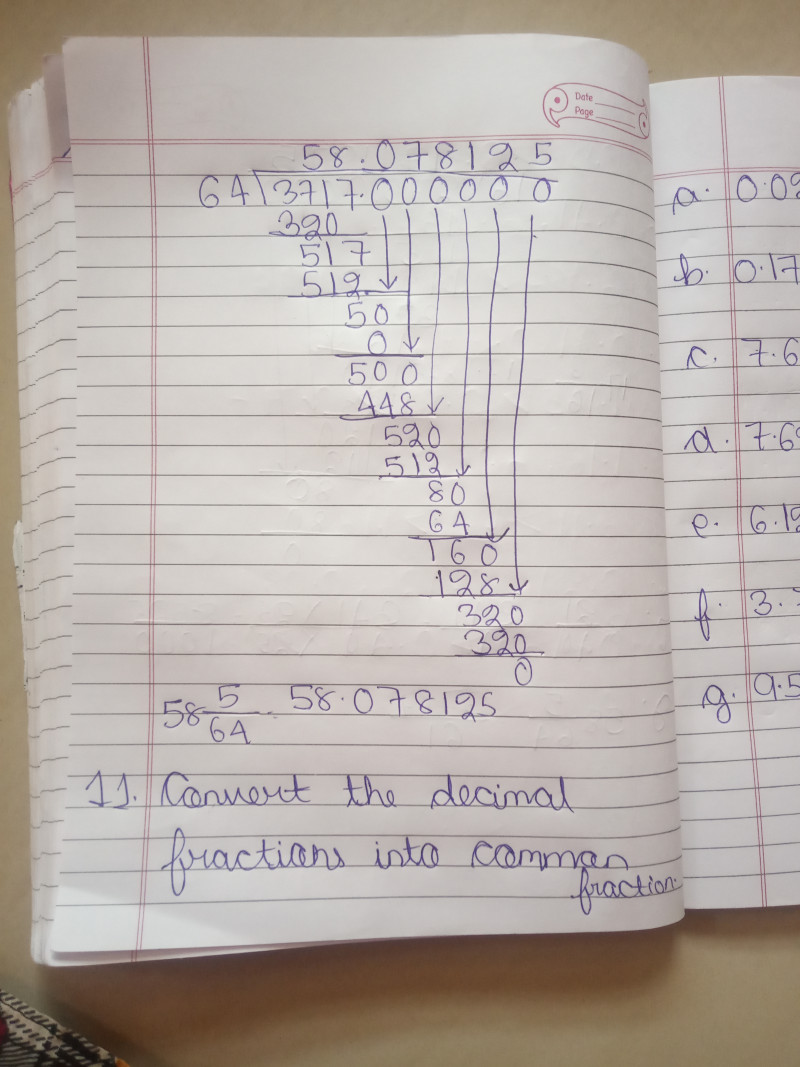 Date
Page
58.078125
64)3717.000000
320
517
512
50
0
500
448
520
512
80
64
160
128
320
320
0
58 5/64 - 58.078125
11. Convert the decimal
fractions into comman
fraction.
a.
b. 0.17
c. 7.6
d.
e.
f. 3.
g.